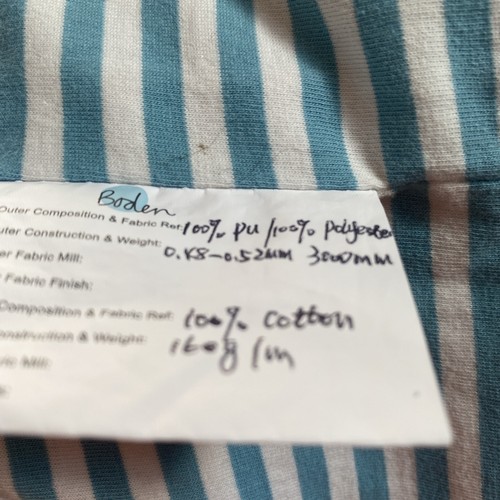 Boden
Outer Composition & Fabric Ref: 100% pu / 100% polyester
uter Construction & Weight: 0.48-0.52mm 3000mm
er Fabric Mill:
Fabric Finish:
Composition & Fabric Ref: 100% cotton
onstruction & Weight: 160g/m
ric Mill: